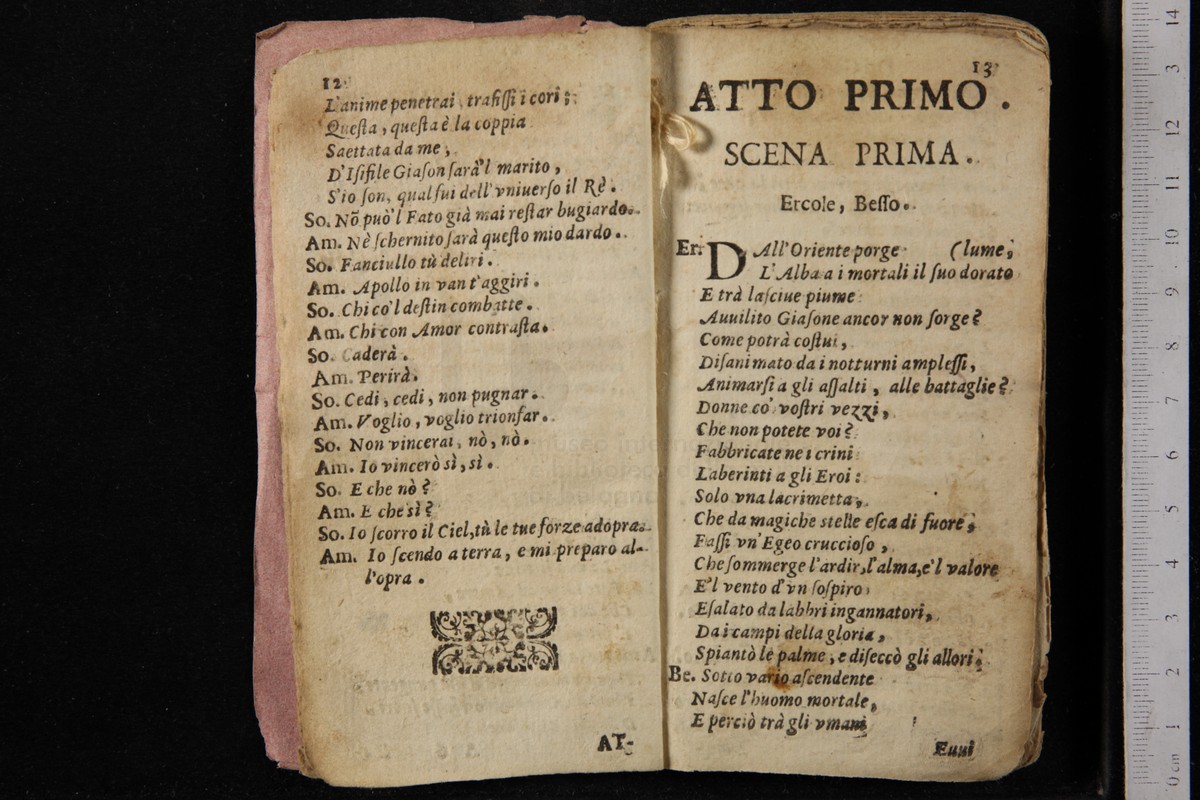 12
L'anime penetrai, trafiſſi i cori:
Queſta, queſta è la coppia
Saettata da me,
D'Iſifile Giaſon ſarà'l marito,
S'io ſon, qual fui dell'vniuerſo il Rè.
So. Nõ può'l Fato già mai reſtar bugiardo.
Am. Nè ſchernito ſarà queſto mio dardo.
So. Fanciullo tù deliri.
Am. Apollo in van t'aggiri.
So. Chi co'l deſtin combatte.
Am. Chi con Amor contraſta.
So. Caderà.
Am. Perirà.
So. Cedi, cedi, non pugnar.
Am. Voglio, voglio trionfar.
So. Non vincerai, nò, nò.
Am. Io vincerò sì, sì.
So. E che nò?
Am. E che sì?
So. Io ſcorro il Ciel, tù le tue forze adopra.
Am. Io ſcendo a terra, e mi preparo al-
l'opra.
AT-
13
ATTO PRIMO.
SCENA PRIMA.
Ercole, Beſſo.
Er. DAll'Oriente porge (lume,
L'Alba a i mortali il ſuo dorato
E trà laſciue piume
Auuilito Giaſone ancor non ſorge?
Come potrà coſtui,
Diſanimato da i notturni ampleſſi,
Animarſi a gli aſſalti, alle battaglie?
Donne co' voſtri vezzi,
Che non potete voi?
Fabbricate ne i crini
Laberinti a gli Eroi:
Solo vna lacrimetta,
Che da magiche stelle eſca di fuore,
Faſſi vn'Egeo crucciofo,
Che ſommerge l'ardir, l'alma, e'l valore
E'l vento d'vn ſoſpiro
Eſalato da labbri ingannatori,
Da i campi della gloria,
Spiantò le palme, e diſeccò gli allori;
Be. Sotto vario aſcendente
Naſce l'huomo mortale,
E perciò trà gli vmani
Euui